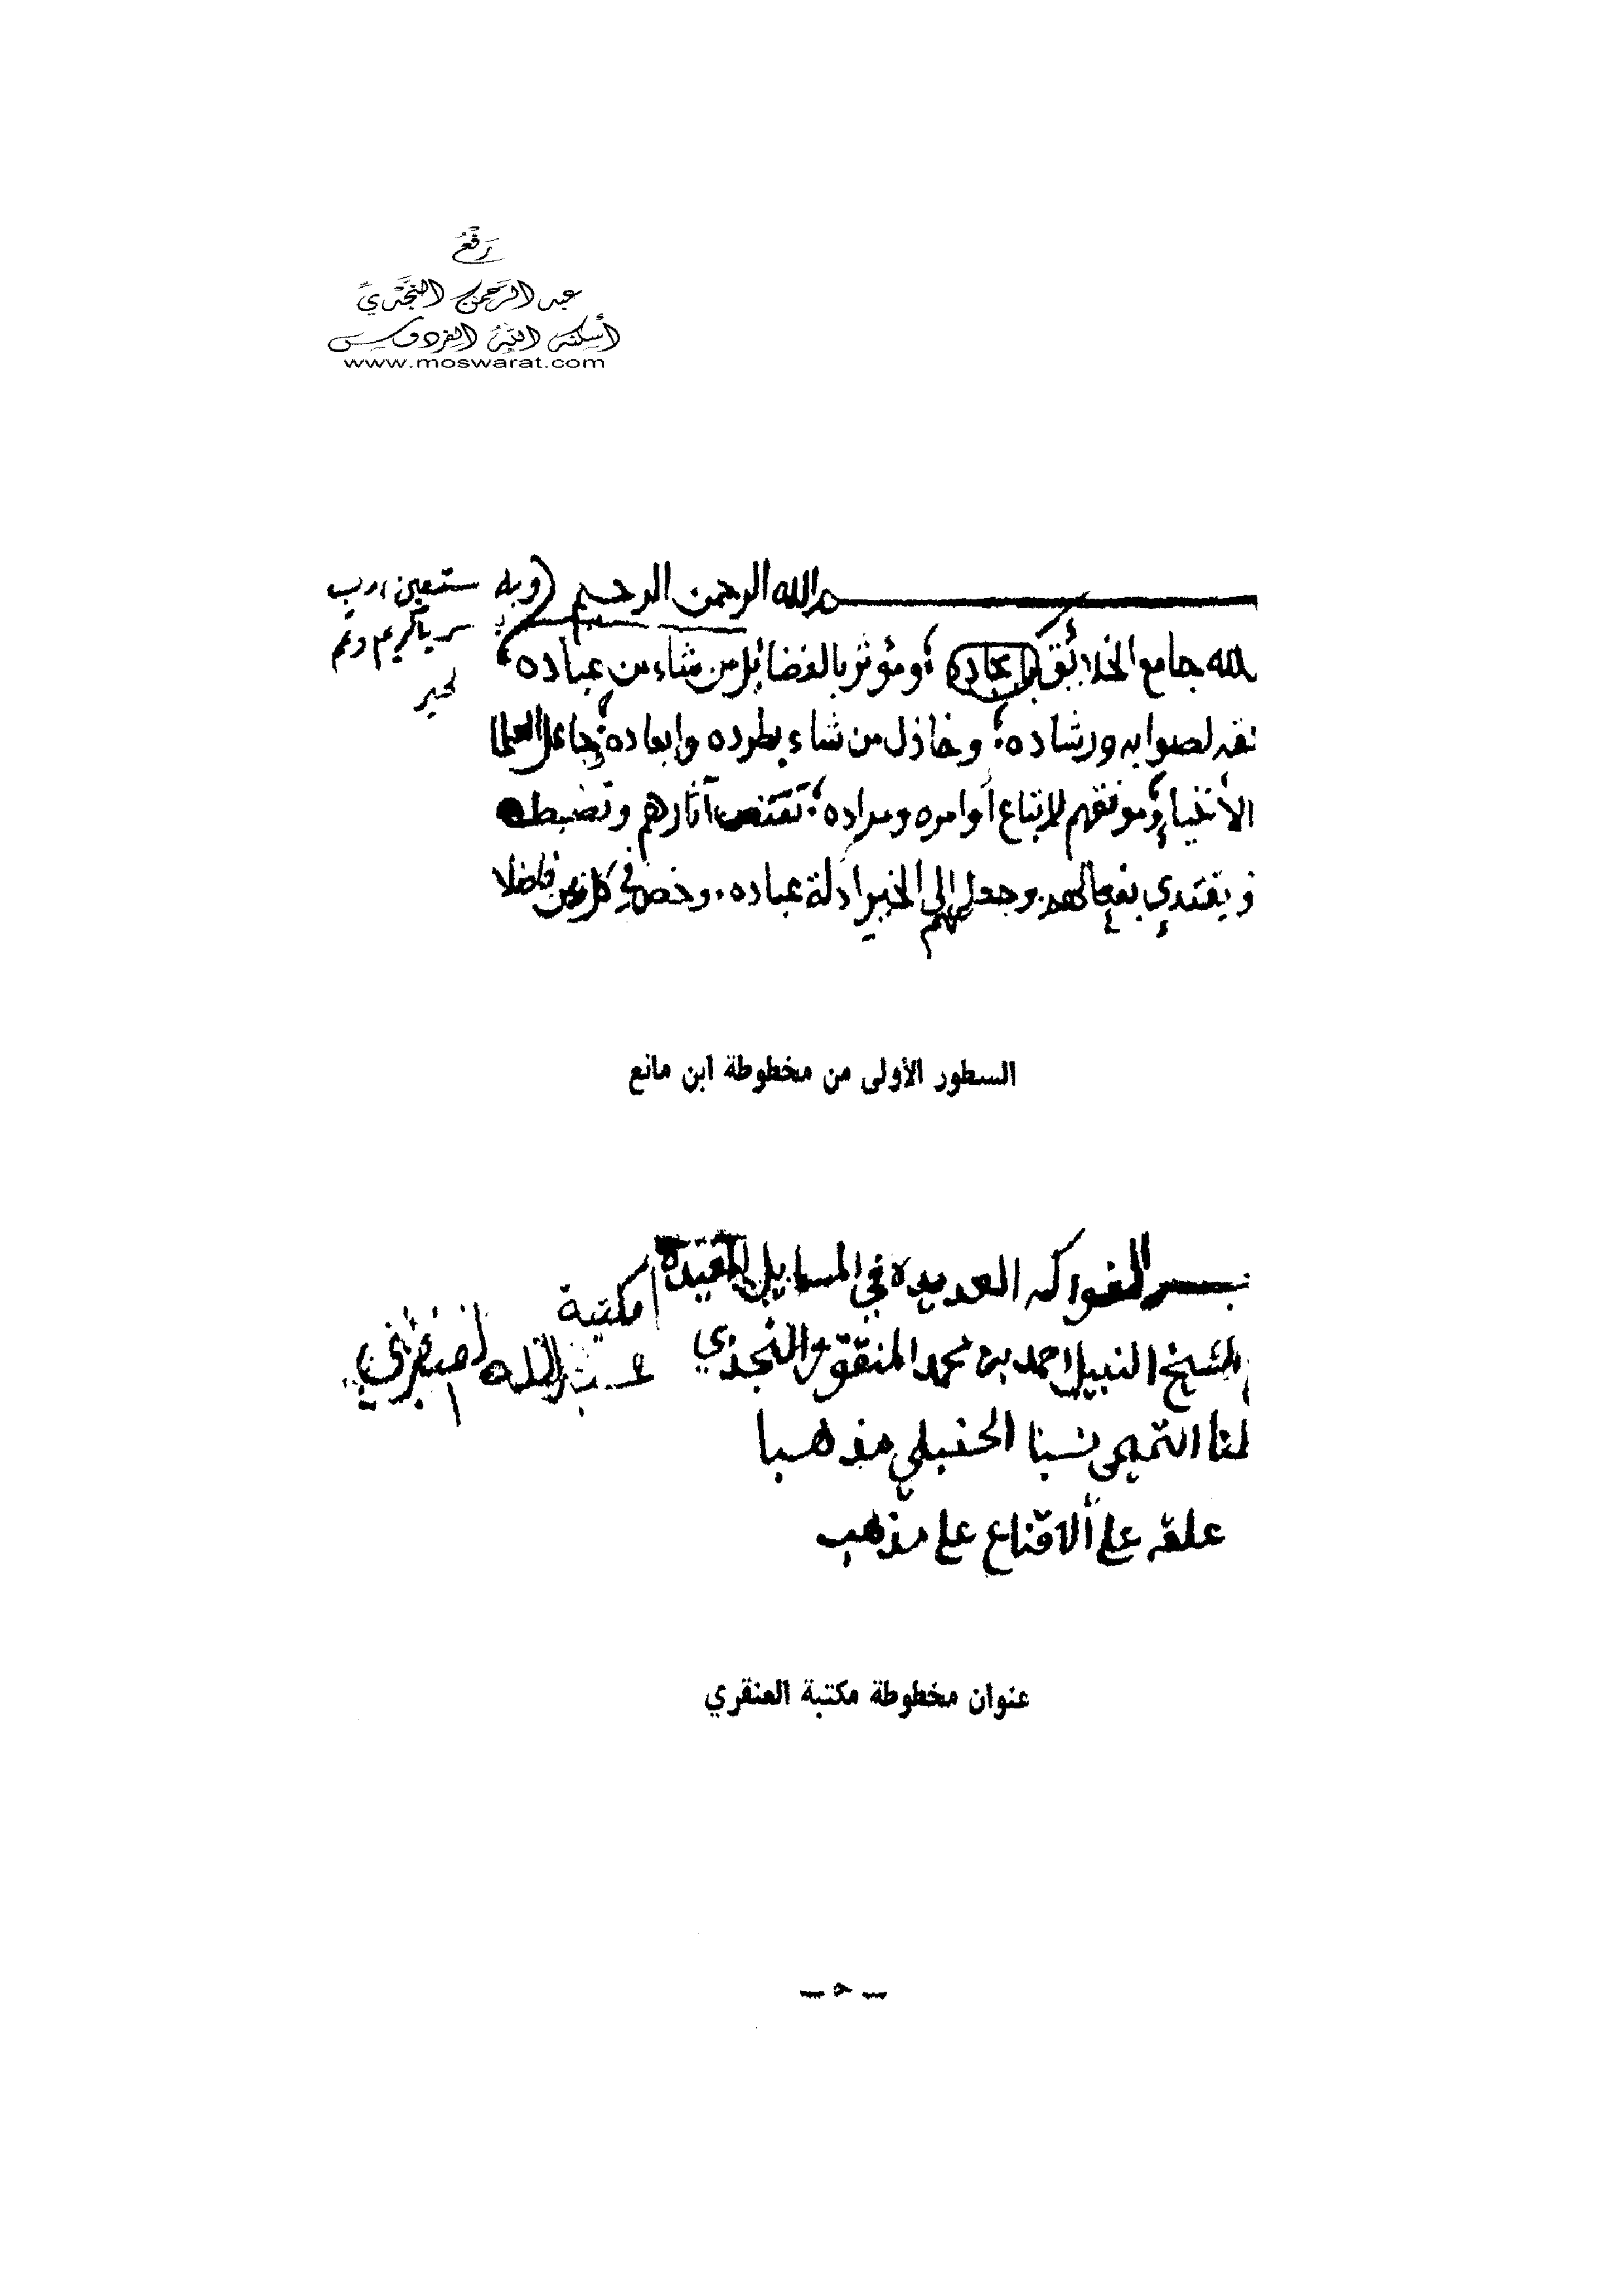 رفع
عبد الرحمن النجدي
أسكنه الله الفردوس
www.moswarat.com
الله الرحمن الرحيم وبه ستعين رب
سر ياكريم وتمم
لخير
لله جامع الخلائق ومؤثر بالفضائل من شاء من عباده
لصوابه ورشاده وخاذل من شاء بطرده وابعاده جاعل العلما
الأتقياء وموفقهم لإتباع أوامره ومراده تقتص آثارهم وتضبط
ويقتدي بفعالهم وجعلهم إلى الخير ادلة عباده وخص في كل زمن فاضلا
السطور الأولى من مخطوطة ابن مانع
الفواكه العديده في المسايل المفيده
مكتبة
الشيخ النبيل احمد بن محمد المنقور النجدي
عبد الله العنقري
التميمي نسبا الحنبلي مذهبا
علقه على الاقناع على مذهب
عنوان مخطوطة مكتبة العنقري
— ٥ —